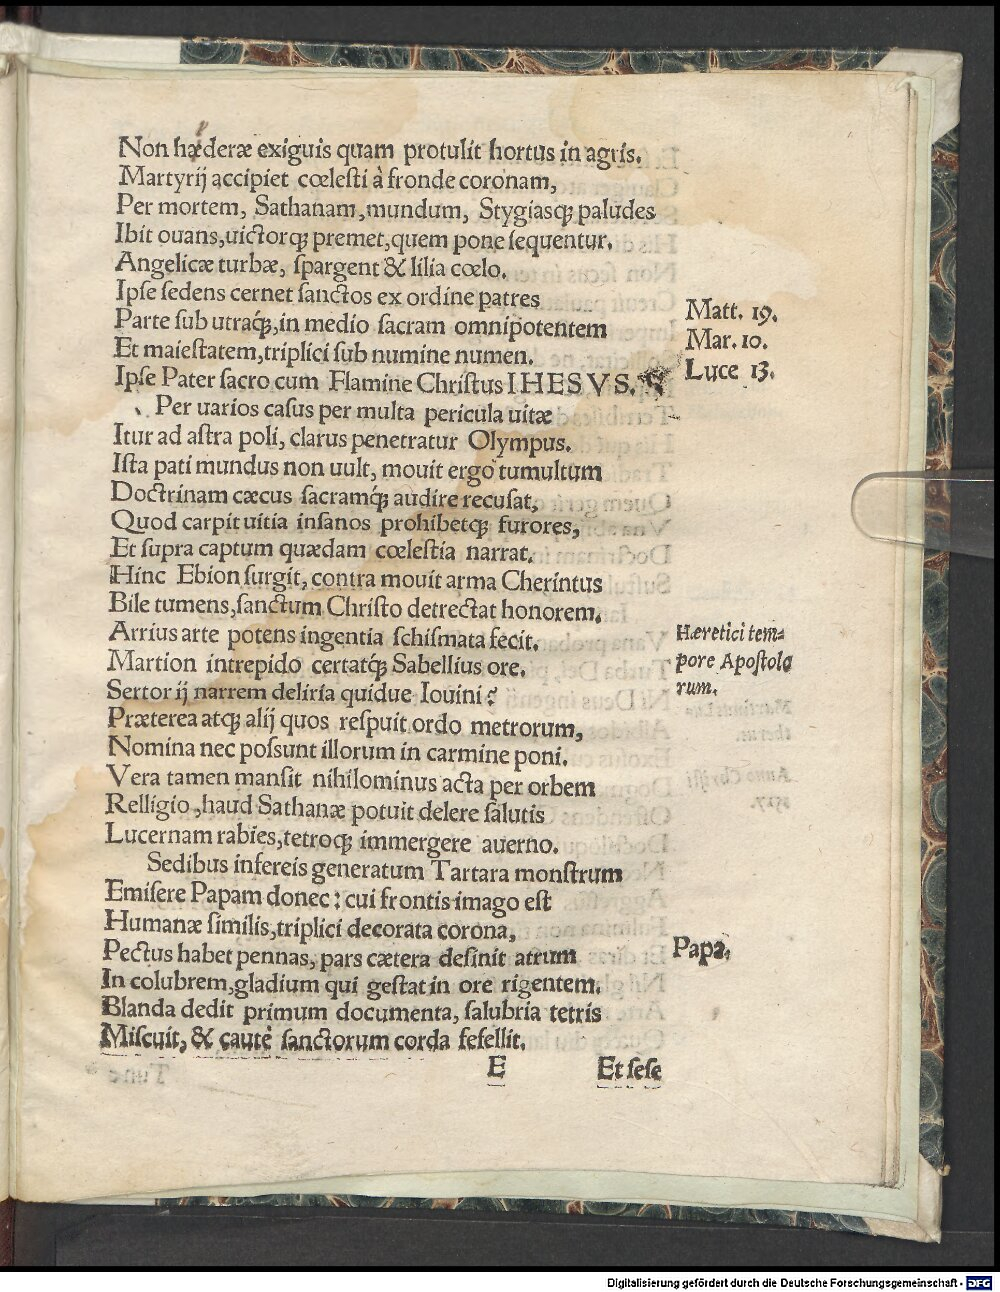 Non hæderæ exiguis quam protulit hortus in agris.
Martyrij accipiet cœlesti à fronde coronam,
Per mortem, Sathanam, mundum, Stygiasq; paludes
Ibit ouans, uictorq; premet, quem pone sequentur.
Angelicæ turbæ, spargent & lilia cœlo.
Ipse sedens cernet sanctos ex ordine patres
Parte sub utraq́;, in medio sacram omnipotentem
Et maiestatem, triplici sub numine numen.
Ipse Pater sacro cum Flamine Christus IHESVS.
Matt. 19.
Mar. 10.
Luce 13.
Per uarios casus per multa pericula uitæ
Itur ad astra poli, clarus penetratur Olympus.
Ista pati mundus non uult, mouit ergo tumultum
Doctrinam cæcus sacramq́; audire recusat,
Quod carpit uitia insanos prohibetq; furores,
Et supra captum quædam cœlestia narrat.
Hinc Ebion surgit, contra mouit arma Cherintus
Bile tumens, sanctum Christo detrectat honorem.
Arrius arte potens ingentia schismata fecit.
Martion intrepido certatq́; Sabellius ore.
Sertorij narrem deliria quidue Iouini?
Hæretici tem=
pore Apostolo
rum.
Præterea atq; alij quos respuit ordo metrorum,
Nomina nec possunt illorum in carmine poni.
Vera tamen mansit nihilominus acta per orbem
Relligio, haud Sathanæ potuit delere salutis
Lucernam rabies, tetroq; immergere auerno.
Sedibus infereis generatum Tartara monstrum
Emisere Papam donec: cui frontis imago est
Humanæ similis, triplici decorata corona,
Pectus habet pennas, pars cætera desinit atrum
Papa.
In colubrem, gladium qui gestat in ore rigentem.
Blanda dedit primum documenta, salubria tetris
Miscuit, & cautè sanctorum corda fefellit.
E Et sese
Digitalisierung gefördert durch die Deutsche Forschungsgemeinschaft - DFG